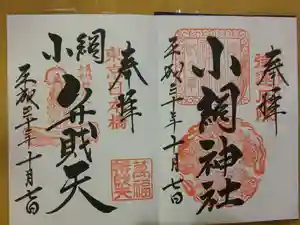 奉拝
小網弁財天
平成三十年十月七日
東京日本橋
萬福
奉拝
小網神社
平成三十年十月七日